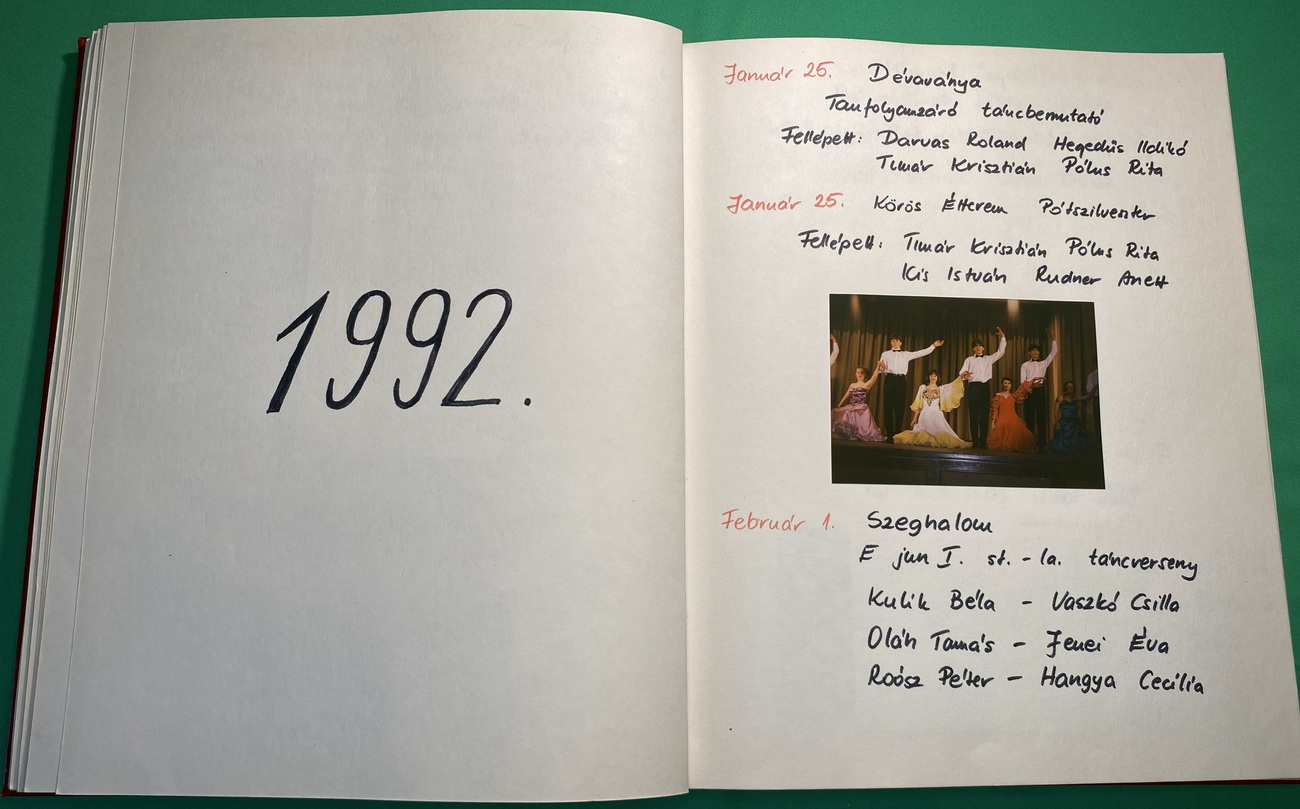 1992.
Január 25. Dévaványa
Tanfolyamzáró táncbemutató
Fellépett: Darvas Roland Hegedűs Ildikó
Timár Krisztián Pólus Rita
Január 25. Körös Étterem Pótszilveszter
Fellépett: Timár Krisztián Pólus Rita
Kis István Rudner Anett
Február 1. Szeghalom
E jun I. st. - la. táncverseny
Kulik Béla - Vaszkó Csilla
Oláh Tamás - Jenei Éva
Roósz Péter - Hangya Cecília